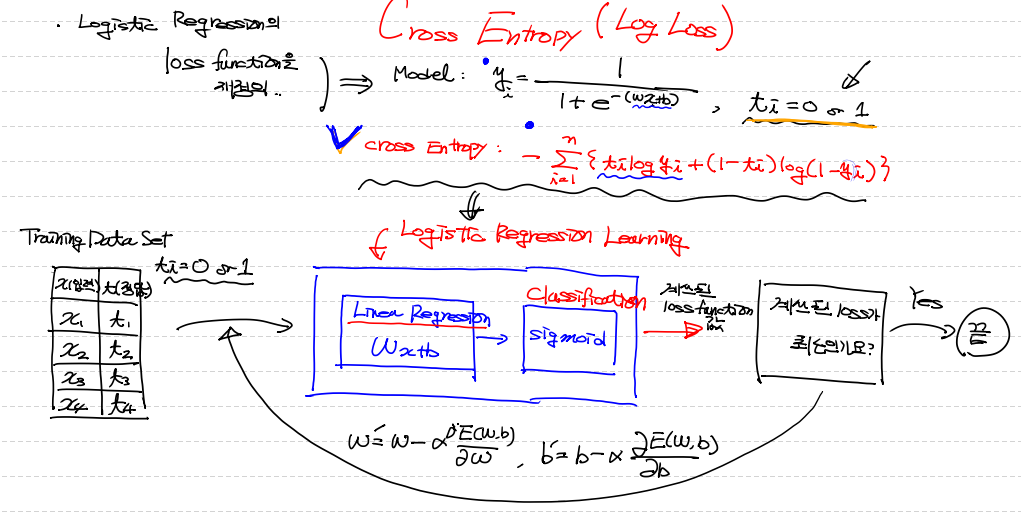 · Logistic Regression의
loss function을
재정의..
Cross Entropy (Log Loss)
⇒ Model : yᵢ = 1 / (1 + e^-(wx+b)) , tᵢ = 0 or 1
Cross Entropy : - Σ_{i=1}^{n} { tᵢ log yᵢ + (1 - tᵢ) log(1 - yᵢ) }
Logistic Regression Learning
Training Data Set
tᵢ = 0 or 1
x(입력) t(정답)
x₁ t₁
x₂ t₂
x₃ t₃
x₄ t₄
Linear Regression
Wx+b
Classification
sigmoid
계산된
loss function
값
계산된 loss가
최소인가요?
Yes
w' = w - α ∂E(w,b)/∂w , b' = b - α ∂E(w,b)/∂b